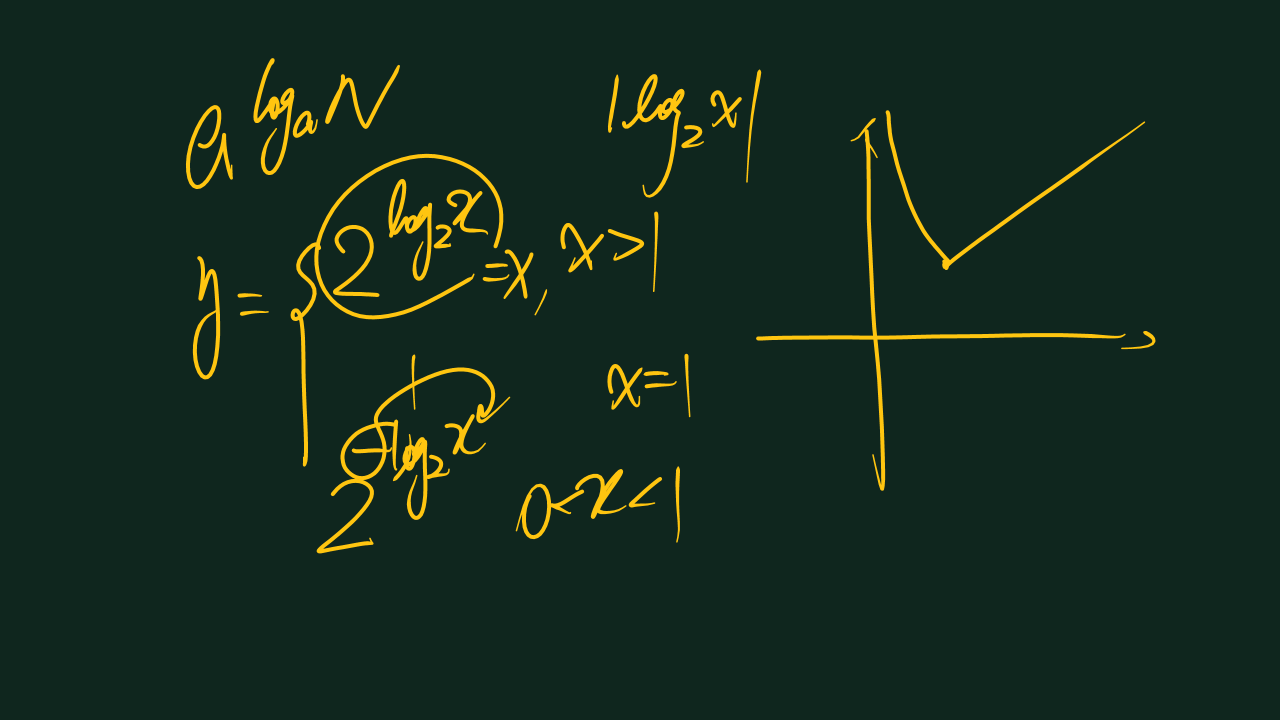 a^{log_a N}
|log_2 x|
y = { 2^{log_2 x} = x, x > 1
1
x = 1
2^{-log_2 x}
0 < x < 1